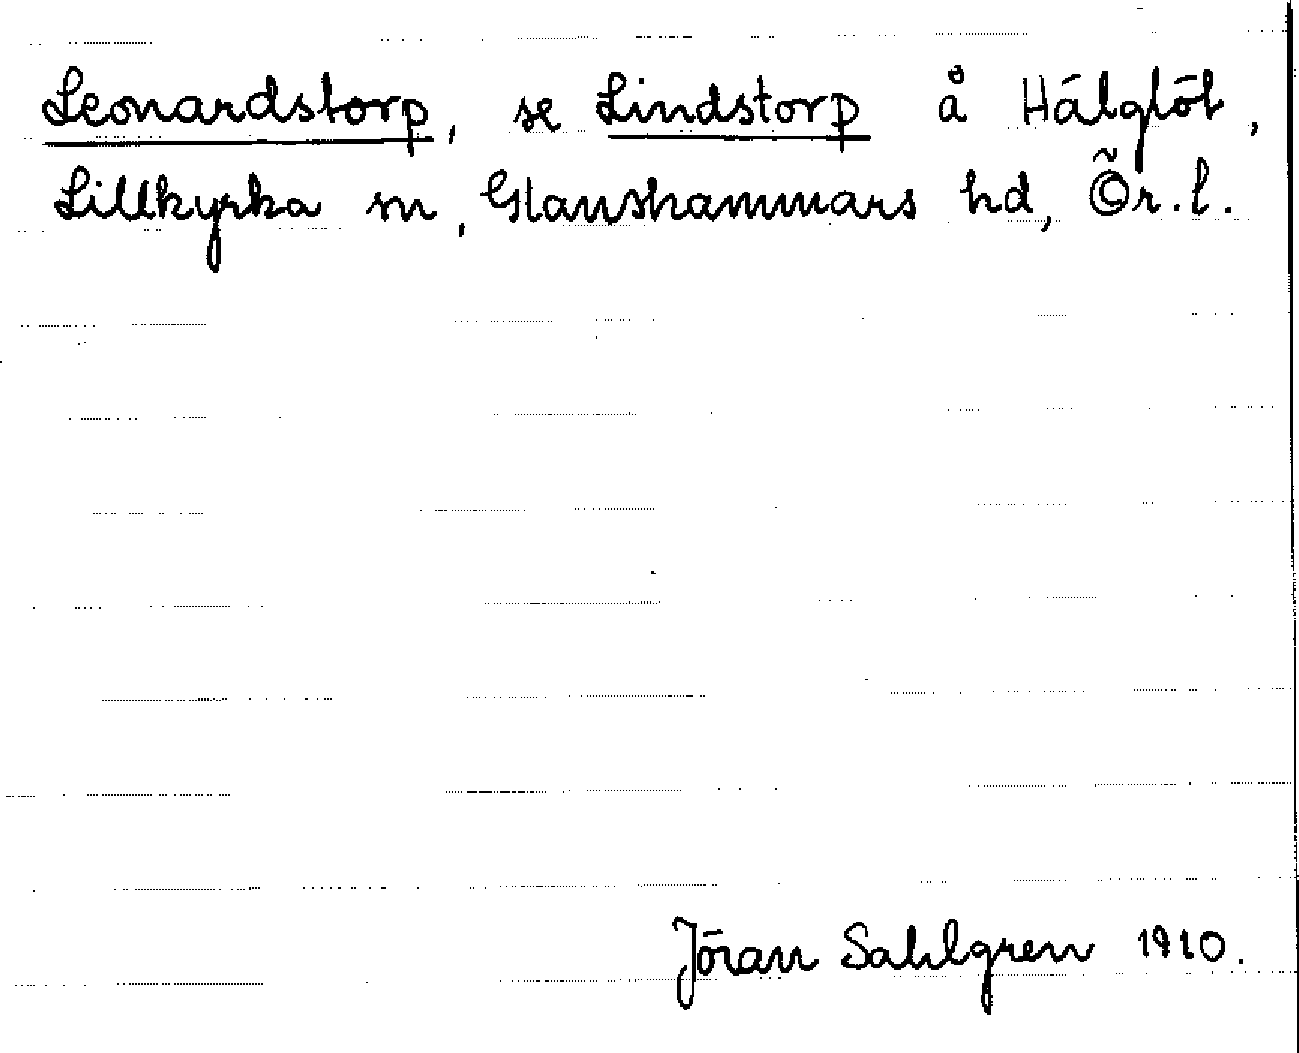 Leonardstorp, se Lindstorp å Hälgtöt,
Lillkyrka sn, Glanshammars hd, Ör.l.
Jöran Sahlgren 1910.